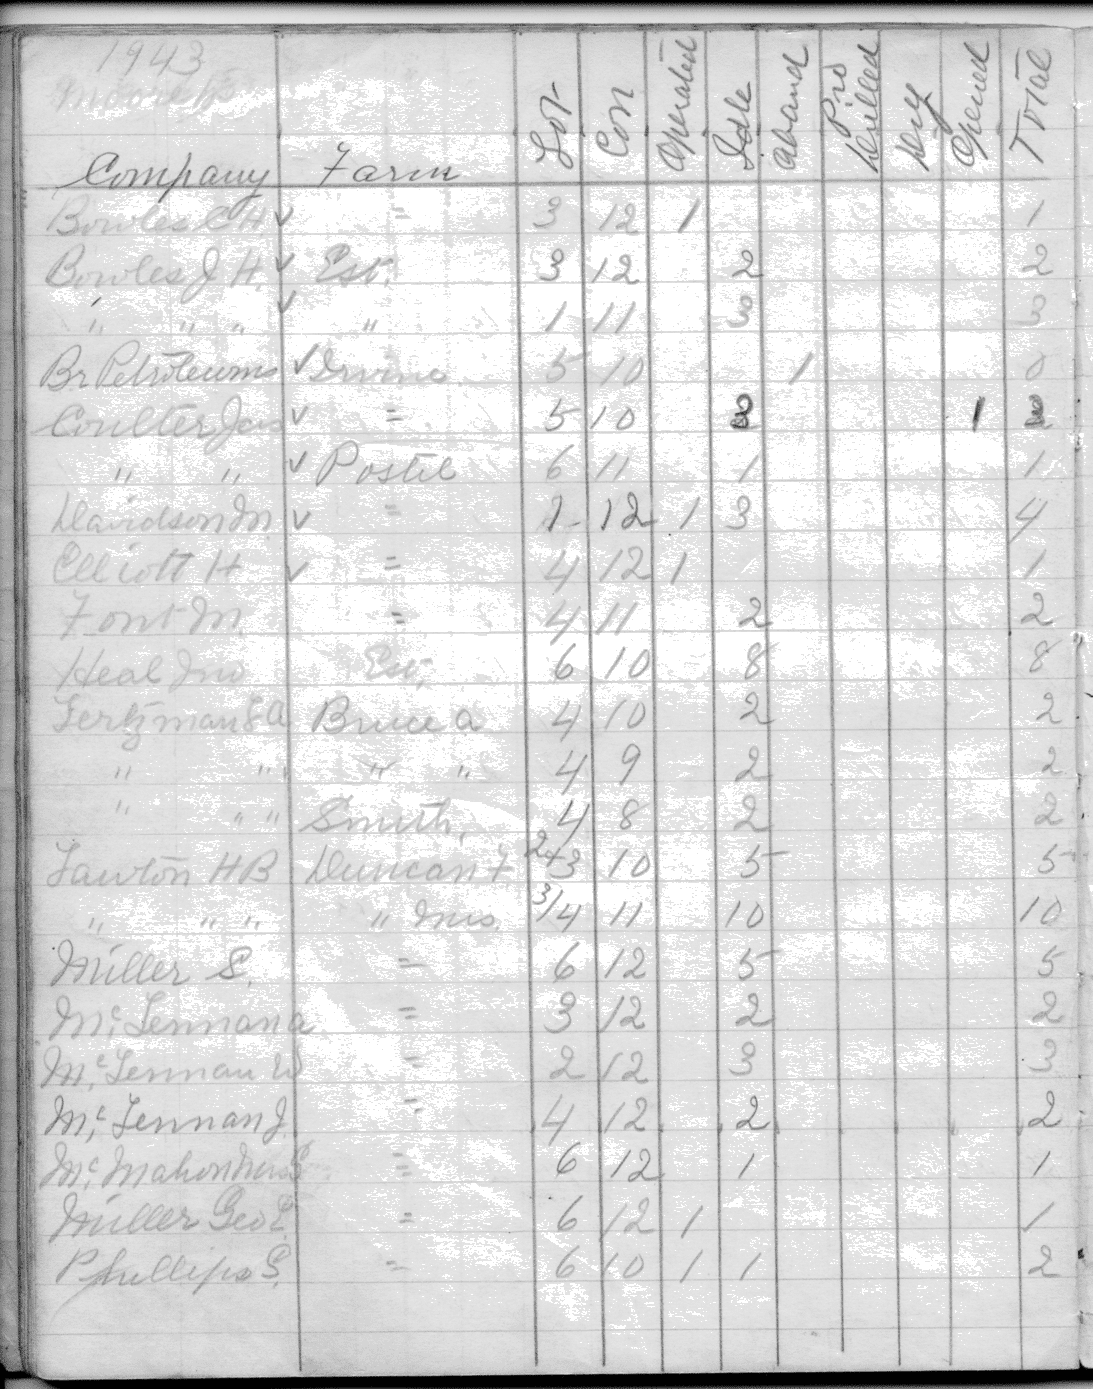 1943
Company Farm Lot Con Operated Idle Aband Pro Drilled Dry Opened Total
Bowles C H ✓ = 3 12 1 1
Bowles J H. ✓ Est. 3 12 2 2
" " " ✓ " 1 11 3 3
Br Petroleums ✓ Irvine 5 10 1 0
Coulter Jas ✓ = 5 10 1
" " ✓ Postil 6 11 1 1
Davidson M. ✓ = 1 12 1 3 4
Elliott H ✓ = 4 12 1 1
Font M. = 4 11 2 2
Heal Jno Est. 6 10 8 8
Lertzman E A Bruce A 4 10 2 2
" " " " 4 9 2 2
" " " Smith. 4 8 2 2
Lawton H B Duncan F. 2+3 10 5 5
" " " " Mrs. 3/4 11 10 10
Miller S. = 6 12 5 5
McLennan A = 3 12 2 2
McLennan W = 2 12 3 3
McLennan J. = 4 12 2 2
McMahon = 6 12 1 1
Miller Geo E. = 6 12 1 1
Phillips S. = 6 10 1 1 2